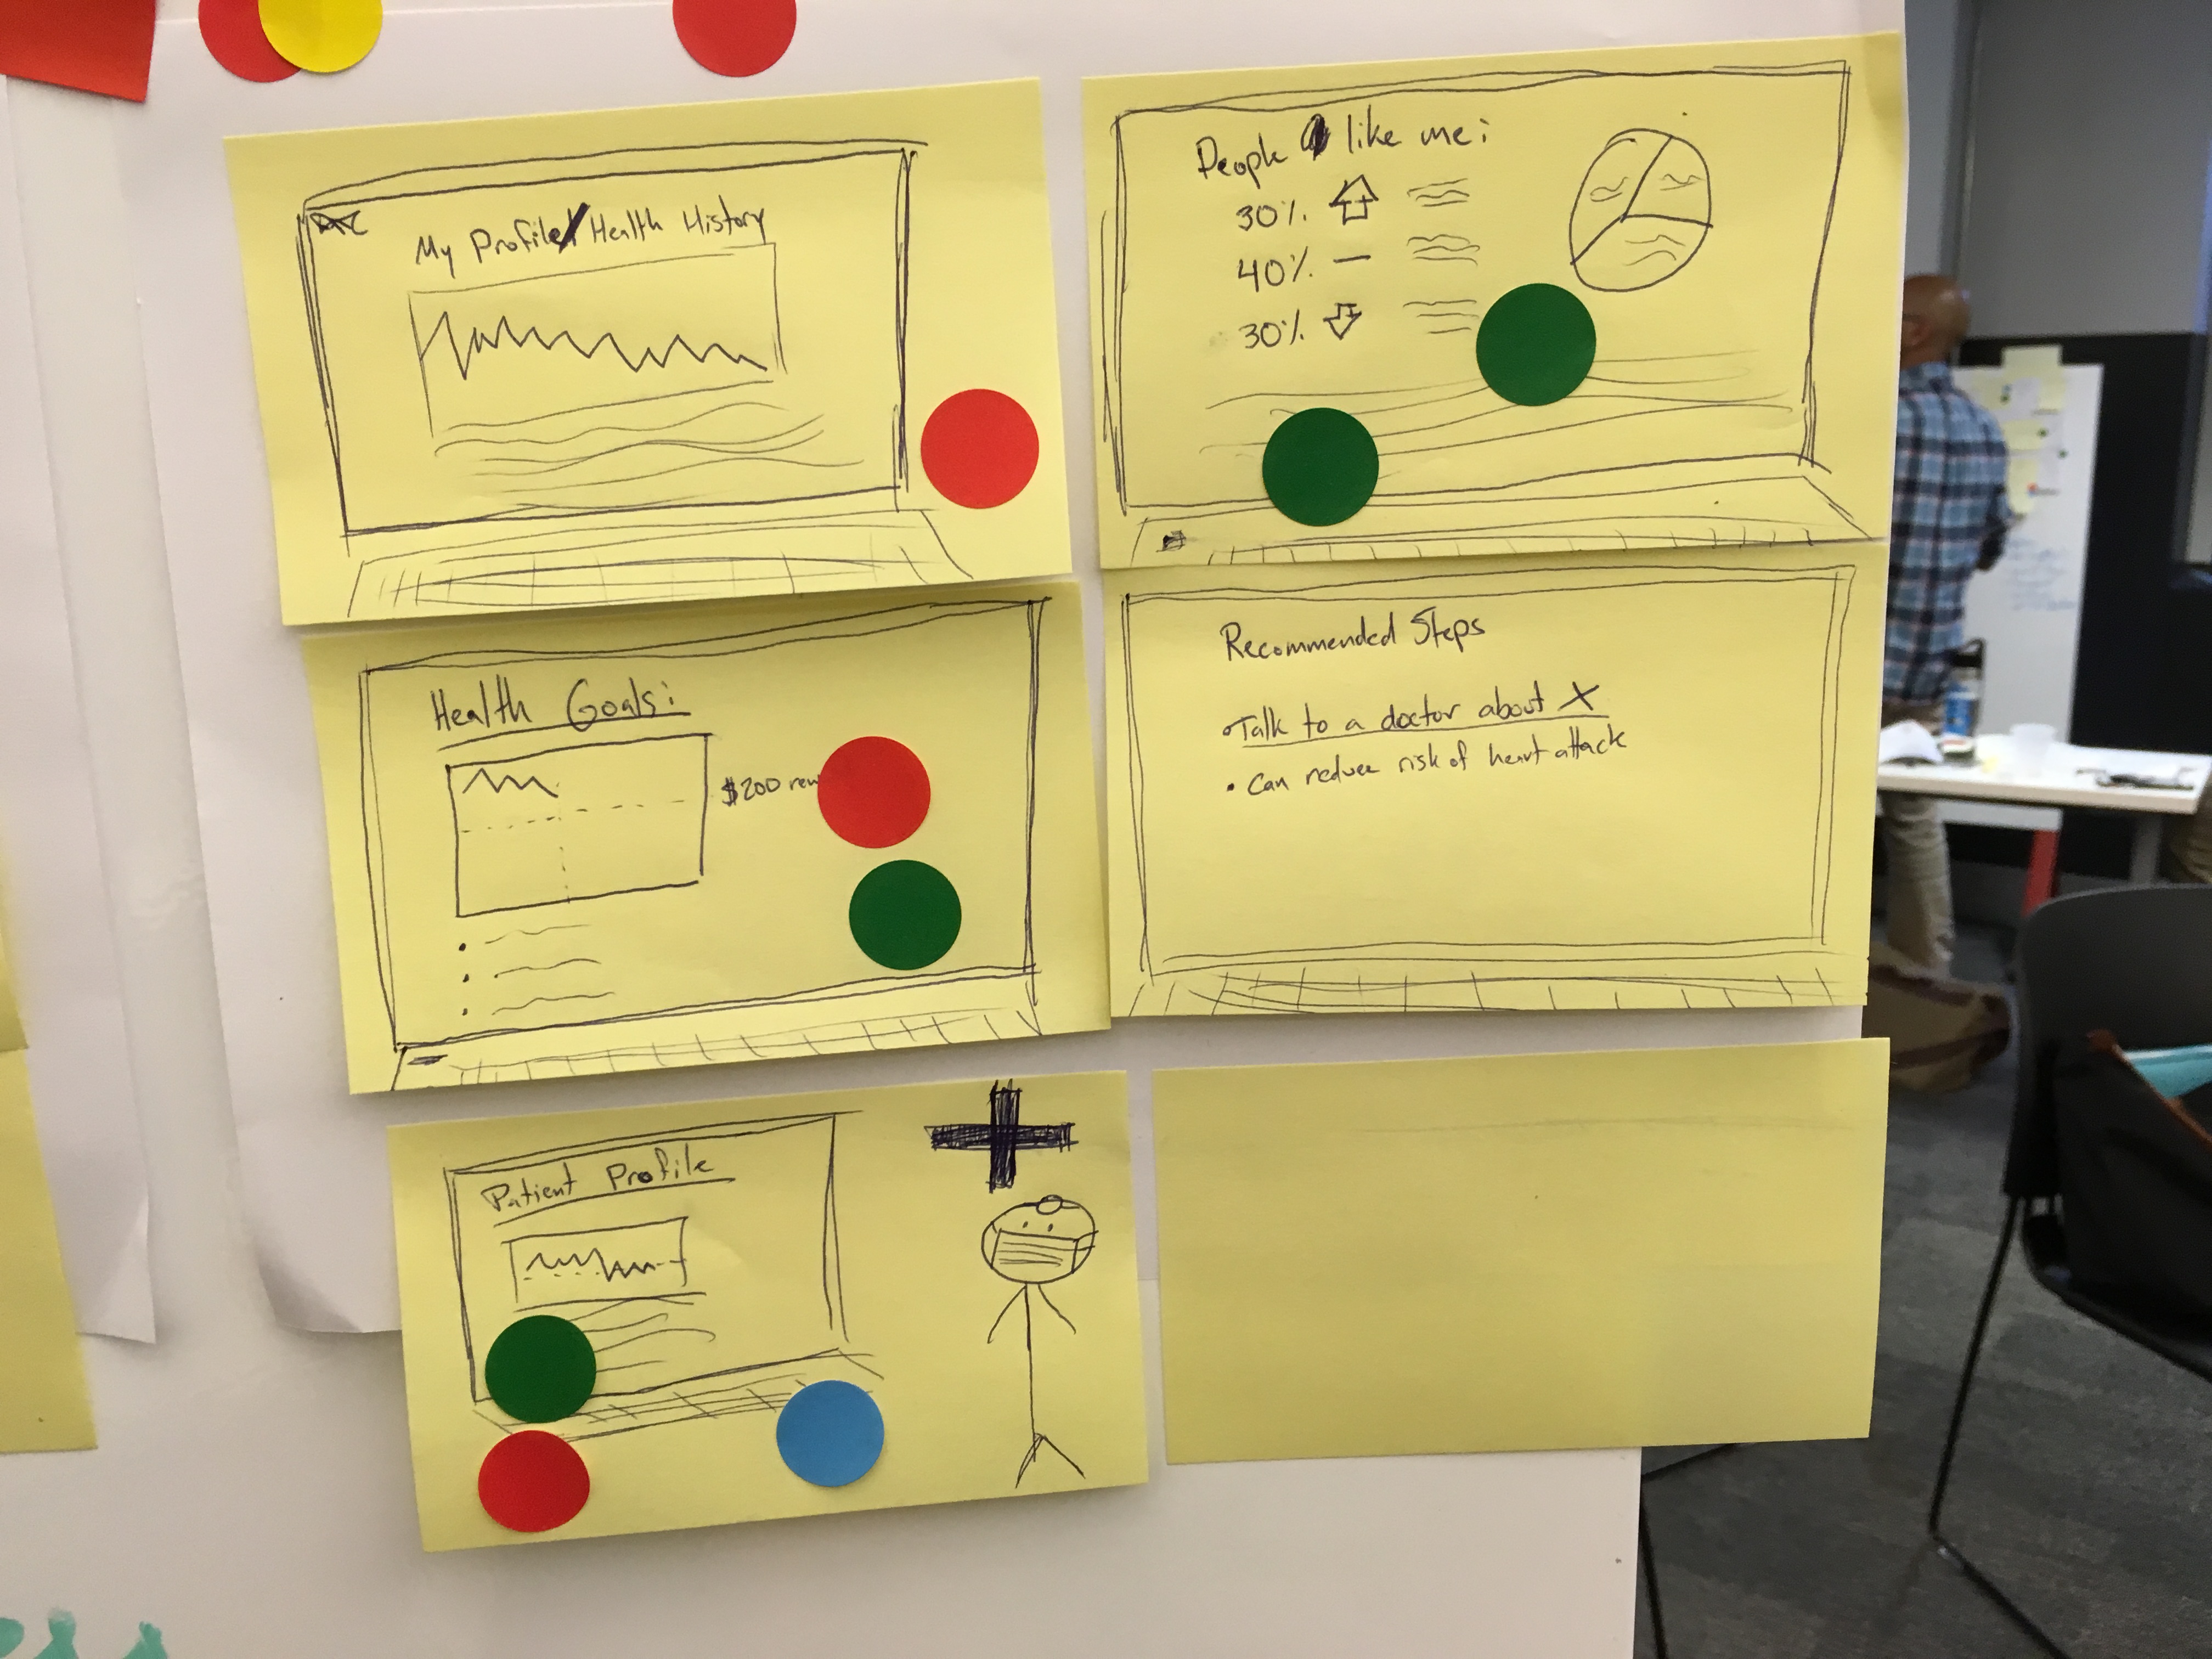 My Profile/Health History
People like me:
30%
40% —
30%
Health Goals:
$200
Recommended Steps
• Talk to a doctor about X
• Can reduce risk of heart attack
Patient Profile